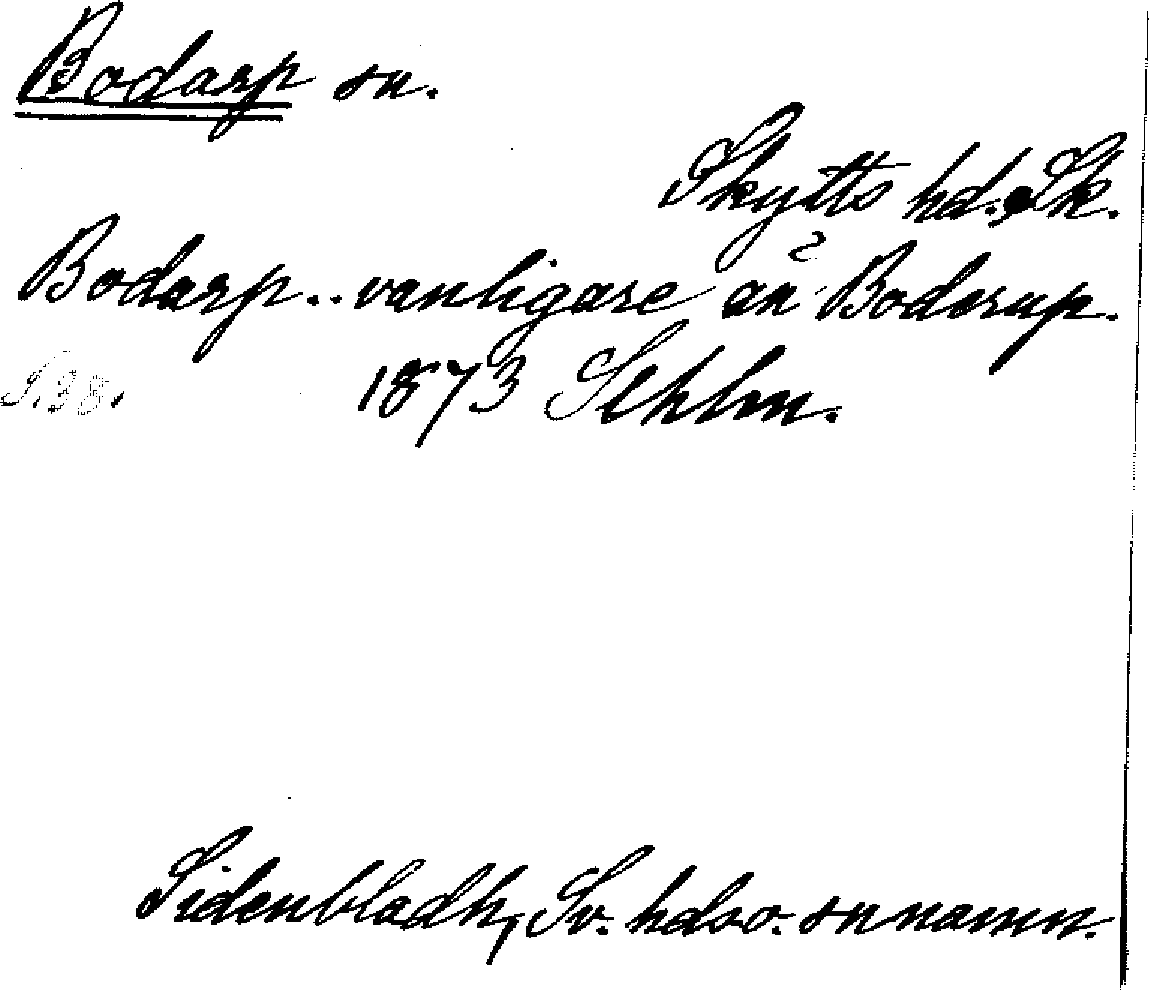 Bodarp sn.
Skytts hd., Sk.
Bodarp.. vanligare än Boderup.
S. 38. 1873 Sthlm.
Sidenbladh, Sv. hds o. snnamn.